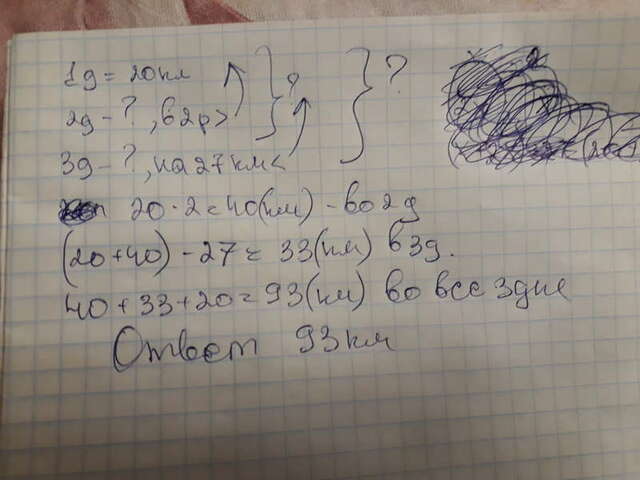 1д = 20км
2д - ?, в 2р > } ?
3д - ?, на 27 км < } ?
20 · 2 = 40(км) - во 2 д
(20+40) - 27 = 33(км) в 3д.
40 + 33 + 20 = 93(км) во все 3 дня
Ответ 93км